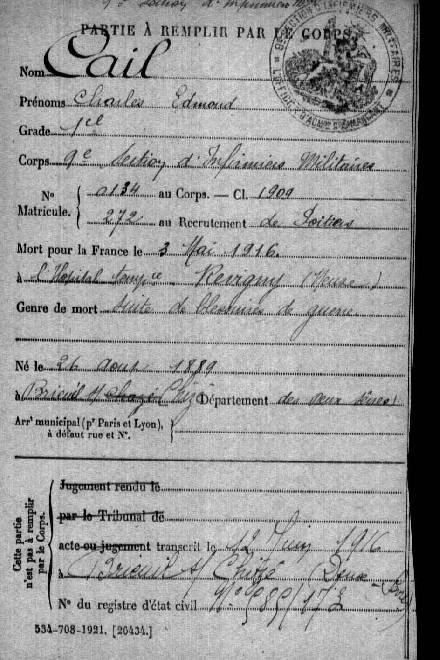 9e Section d'Infirmiers
PARTIE À REMPLIR PAR LE CORPS
Nom Cail
Prénoms Charles Edmond
Grade
Corps 9e Section d'Infirmiers Militaires
No a134 au Corps. — Cl. 1909
Matricule. 272 au Recrutement de Poitiers
Mort pour la France le 3 Mai 1916.
à l'Hopital Revigny (Meuse)
Genre de mort Suite de blessures de guerre
Né le 26 aout 1889
à Brieuil s/ Chizé Département des deux Sèvres
Arrt municipal (pr Paris et Lyon), à défaut rue et No.
Cette partie n'est pas à remplir par le Corps.
Jugement rendu le
par le Tribunal de
acte ou jugement transcrit le 12 Juin 1916
à Brieuil s/ Chizé (Deux-
No du registre d'état civil
534-708-1921. [26434.]